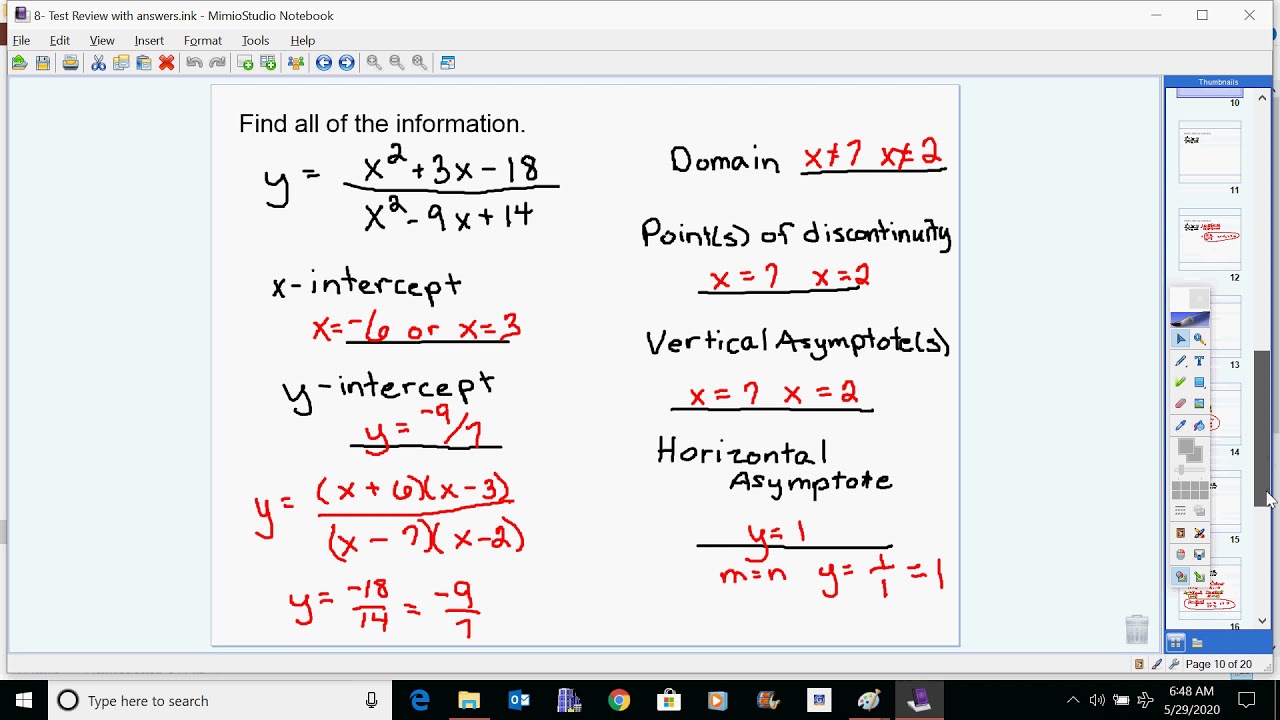 8- Test Review with answers.ink - MimioStudio Notebook
File Edit View Insert Format Tools Help
Thumbnails
Find all of the information.
y = x²+3x-18 / x²-9x+14
x-intercept
x=-6 or x=3
y-intercept
y = -9/7
y = (x+6)(x-3) / (x-7)(x-2)
y = -18/14 = -9/7
Domain x≠7 x≠2
Point(s) of discontinuity
x=7 x=2
Vertical Asymptote(s)
x=7 x=2
Horizontal
Asymptote
y=1
m=n y=1/1=1
10
11
12
13
14
15
16
Page 10 of 20
Type here to search
6:48 AM
5/29/2020